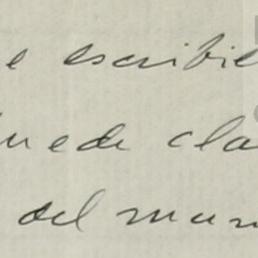 e escribie
uede cla
del mun